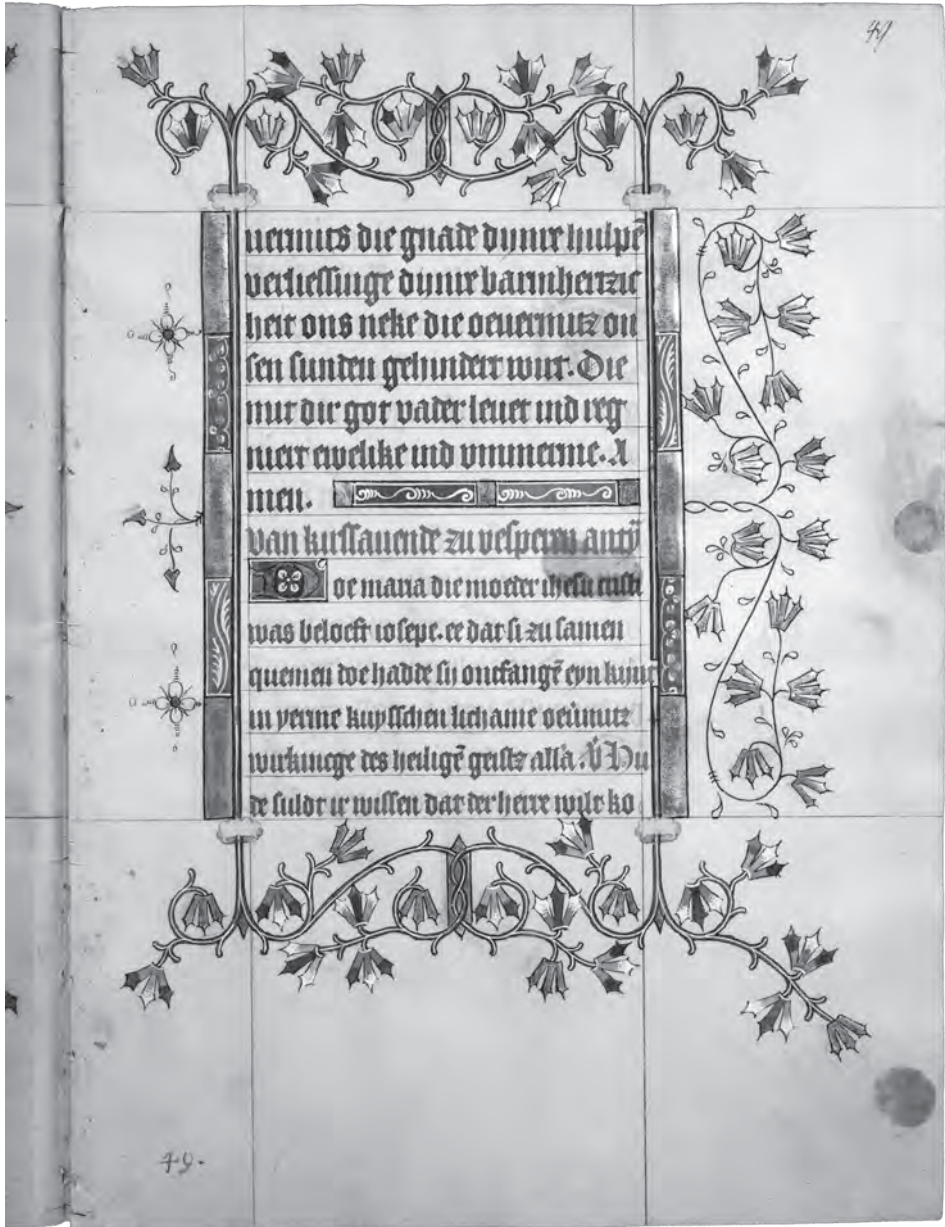 49
uermits die gnade dynre hulpē
verliessinge dynre barmhertzic
heit ons neke die oeuermitz on
sen sunden gehindert wirt. Die
mit dir got vader leuet ind reg
niert ewelike ind vmmerme. A
men.
van kirssauende zu vesperen antỹ
oe maria die moeder ihesu cristi
was beloeft iosepe. ee dat si zu samen
quemen doe hadde sy ontfangē eyn kint
in yerme kuysschen lichame oeũmitz
wirkincge des heiligē geistz allā. V̓ Hu
de suldt ir wissen dat der herre wilt ko
49.